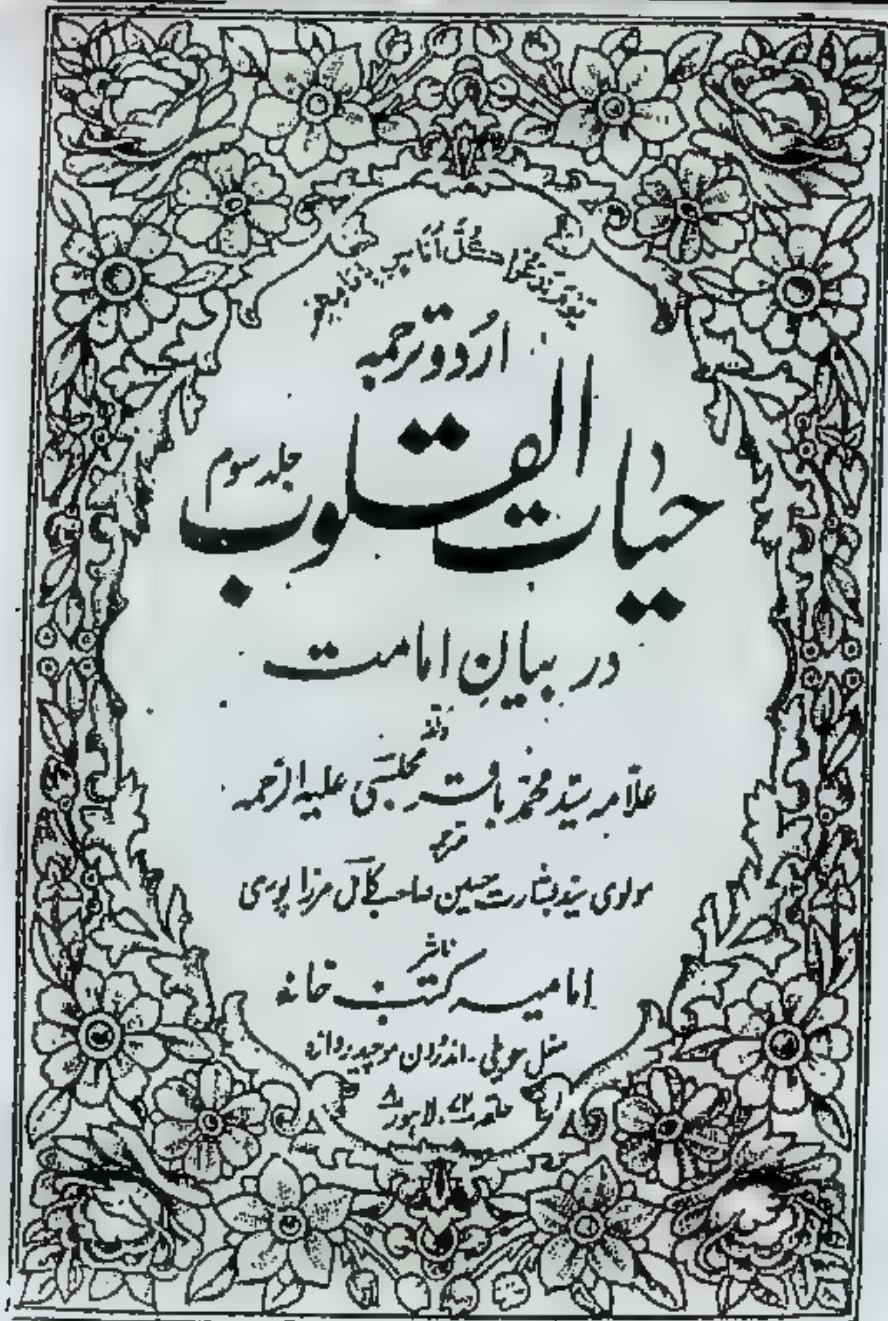 يَوْمَ نَدْعُوا كُلَّ أُنَاسٍ بِإِمَامِهِمْ
اُردُو ترجمہ
حیات القلوب
جلد سوم
در بیانِ امامت
مؤلفہ
علّامہ سیّد محمّد باقر مجلسی علیہ الرّحمہ
مترجمہ
مولوی سیّد بشارت حسین صاحب کامل مرزا پوری
ناشر
امامیہ کتب خانہ
مغل حویلی۔ اندرُون موچیدروازہ
حلقہ ۷۲، لاہور ۸